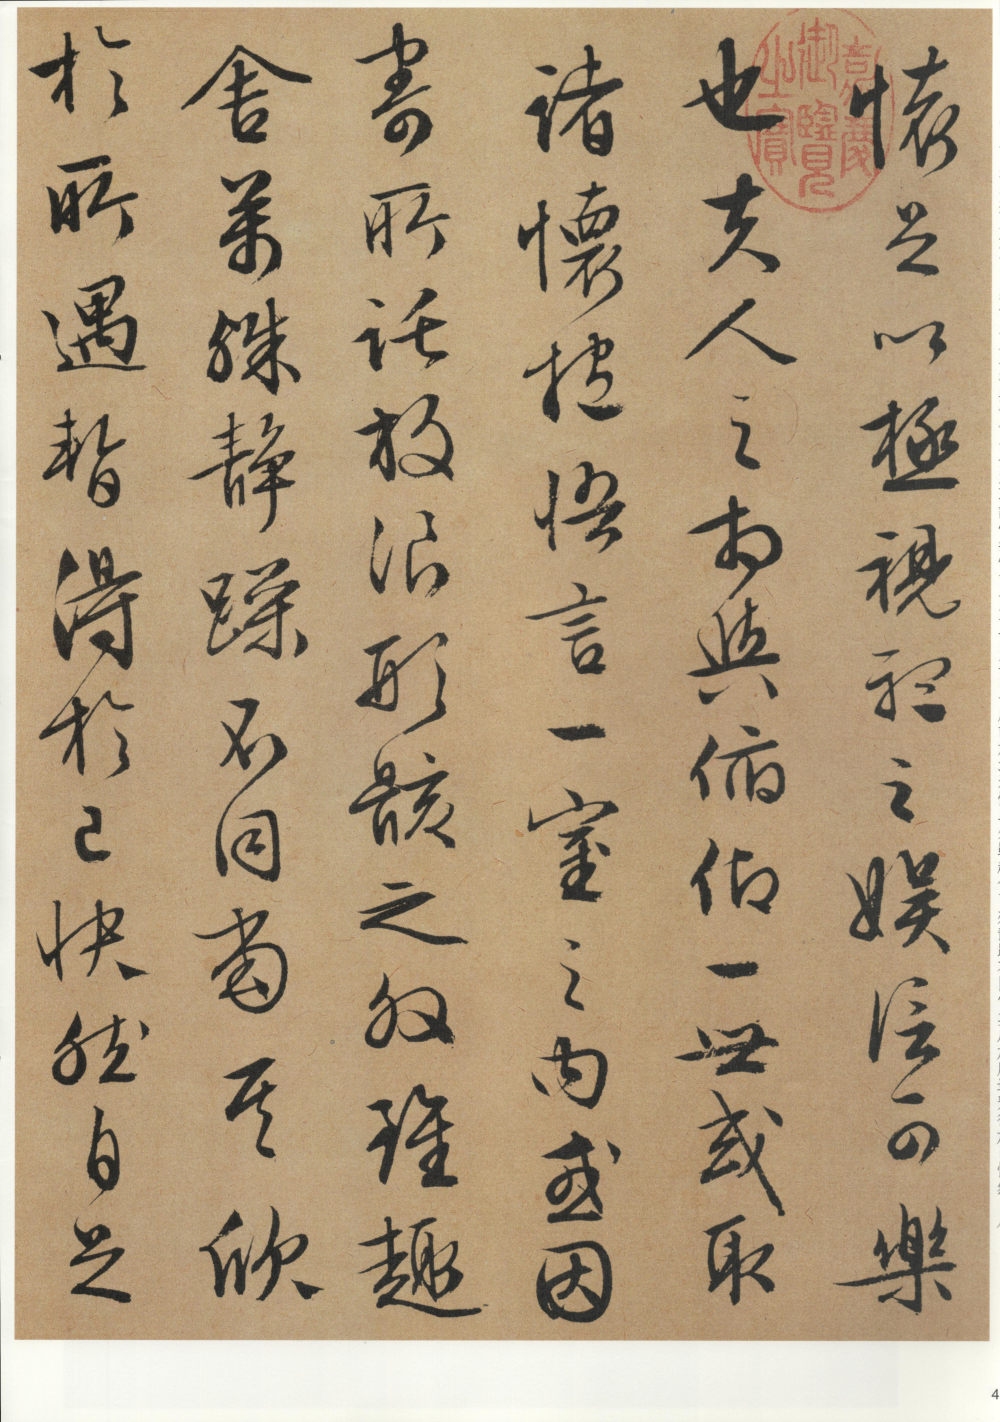 懷足以極視聽之娛信可樂
也夫人之相與俯仰一世或取
諸懷抱悟言一室之內或因
寄所託放浪形骸之外雖趣
舍萬殊靜躁不同當其欣
於所遇暫得於己快然自足
嘉慶御覽之寶
4